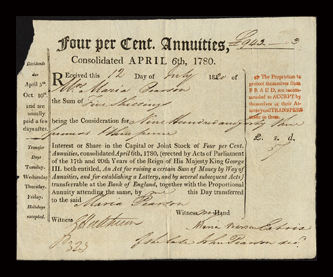 Four per Cent. Annuities, £943 — 3
Consolidated APRIL 6th, 1780.
Dividends
due
April 5th
Oct 10th
and are
usually
paid a few
days after.
Transfer
Days
Tuesday
Wednesday
Thursday
Friday
Holidays
excepted.
RECEIVED this 12 Day of July 1820 of
Mrs Maria Pearson
the Sum of Five Shillings
being the Consideration for Nine Hundred and forty three
pounds three pence
Interest or Share in the Capital or Joint Stock of Four per Cent.
Annuities, consolidated April 6th, 1780, (erected by Acts of Parliament
of the 17th and 20th Years of the Reign of His Majesty King George
III. both entitled, An Act for raising a certain Sum of Money by Way of
Annuities, and for establishing a Lottery, and by several subsequent Acts)
transferable at the Bank of England, together with the Proportional
Annuity attending the same, by me this Day transferred
to the said Maria Pearson
Witness my Hand
Witness
of the late John Pearson
The Proprietors to
protect themselves from
FRAUD, are recom-
mended to ACCEPT by
themselves or their At-
tornies all TRANSFERS
£. s. d.
5